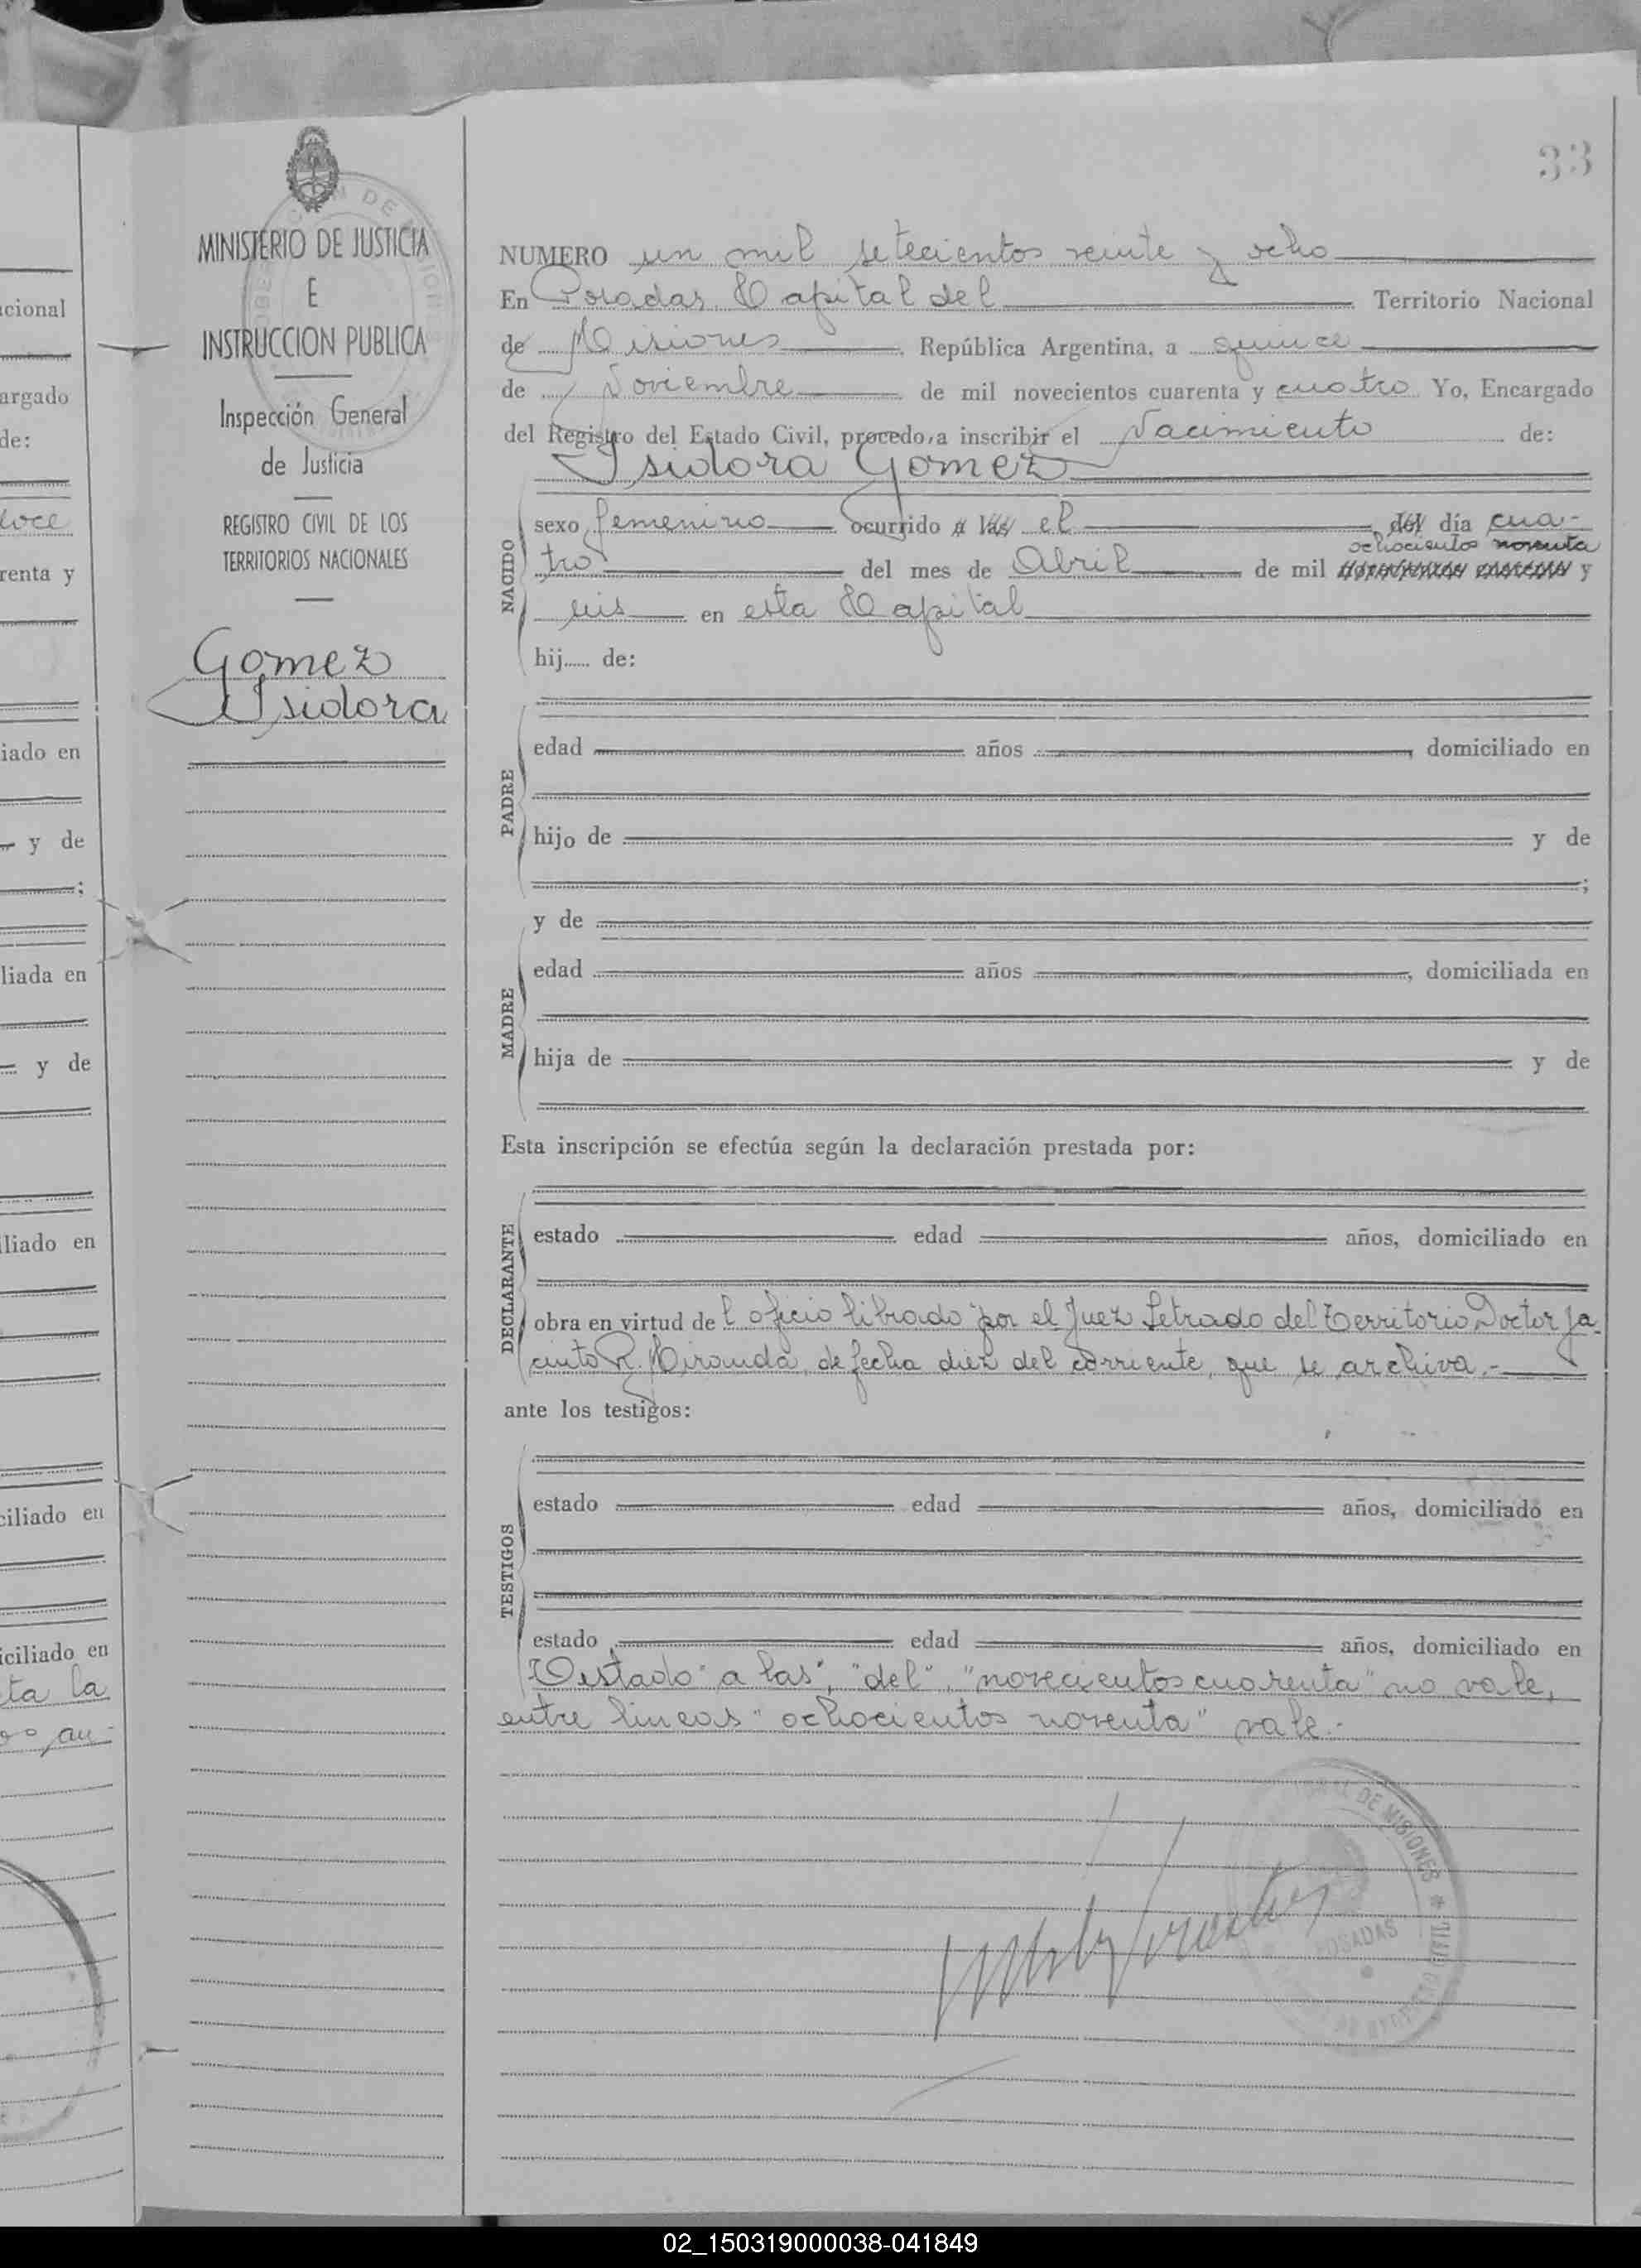 33
MINISTERIO DE JUSTICIA
E
INSTRUCCION PUBLICA
Inspección General
de Justicia
REGISTRO CIVIL DE LOS
TERRITORIOS NACIONALES
Gomez
Isidora
NUMERO un mil setecientos veinte y ocho
En Posadas, Capital del Territorio Nacional
de Misiones República Argentina, a quince
de Noviembre de mil novecientos cuarenta y cuatro Yo, Encargado
del Registro del Estado Civil, procedo a inscribir el Nacimiento de:
Isidora Gomez
NACIDO
sexo femenino ocurrido a las el del día cua-
ochocientos noventa
tro del mes de Abril de mil novecientos cuarenta y
seis en esta Capital
hij..... de:
PADRE
edad años , domiciliado en
hijo de y de
;
y de
MADRE
edad años , domiciliada en
hija de y de
Esta inscripción se efectúa según la declaración prestada por:
DECLARANTE
estado edad años, domiciliado en
obra en virtud del oficio librado por el Juez Letrado del Territorio Doctor Ja-
cinto R. Miranda, de fecha diez del corriente, que se archiva.-
ante los testigos:
TESTIGOS
estado edad años, domiciliado en
estado edad años, domiciliado en
Testado "a las", "del", "novecientos cuarenta" no vale,
entre lineas "ochocientos noventa" vale.-
DE MISIONES
POSADAS
cional
argado
de:
doce
renta y
iado en
y de
;
liada en
y de
liado en
ciliado en
iciliado en
ta la
au-
02_150319000038-041849